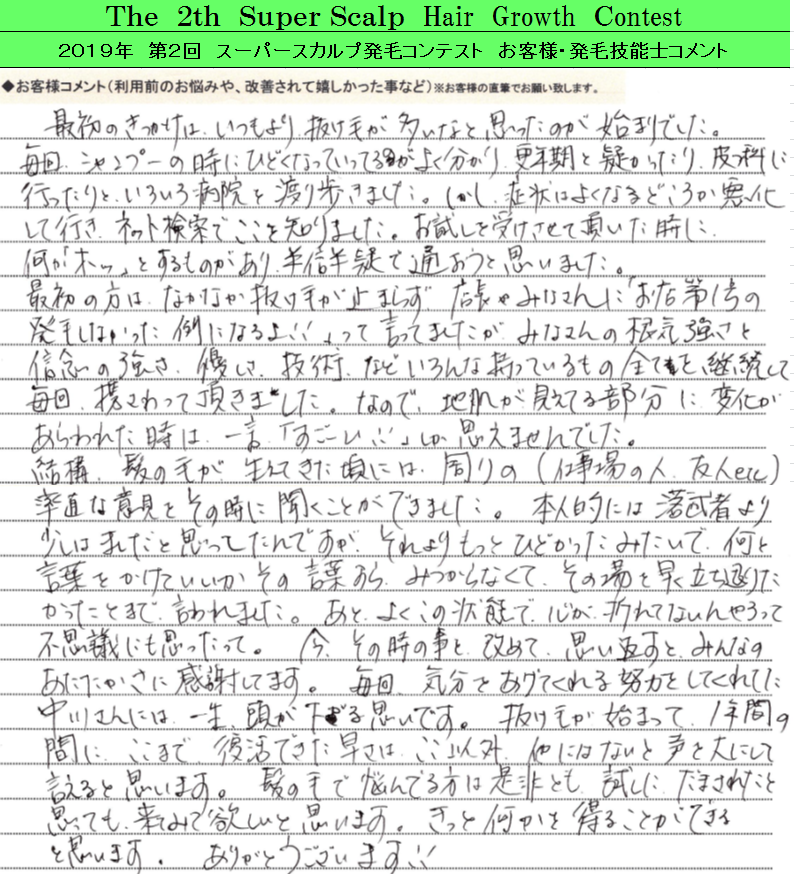 The 2th Super Scalp Hair Growth Contest
2019年 第2回 スーパースカルプ発毛コンテスト お客様・発毛技能士コメント
◆お客様コメント(利用前のお悩みや、改善されて嬉しかった事など)※お客様の直筆でお願い致します。
最初のきっかけは、いつもより、抜け毛が多いなと思ったのが始まりでした。
毎回、シャンプーの時にひどくなっていってるのがよく分かり、更年期と疑がったり、皮フ科に
行ったりと、いろいろ病院を渡り歩きました。しかし、症状はよくなるどころか悪化
して行き、ネット検索でここを知りました。お試しを受けさせて頂いた時に、
何か「ホッ」とするものがあり、半信半疑で通おうと思いました。
最初の方は、なかなか抜け毛が止まらず、店長やみなさんに「お店第1号の
発毛しなかった例になるよ!!」って言ってましたが、みなさんの根気強さと
信念の強さ、優しさ、技術、などいろんな持っているもの全てを、継続して
毎回、携さわって頂きました。なので、地肌が見えてる部分に変化が
あらわれた時は、一言、「すごーい!!」しか思えませんでした。
結構、髪の毛が、生えてきた頃には、周りの(仕事場の人、友人etc)
率直な意見をその時に聞くことができました。本人的には落武者より
少しはましだと思ってしたんですが、それよりもっとひどかったみたいで、何と
言葉をかけていいかその言葉すら、みつからなくて、その場を早く立ち退りた
かったとまで、言われました。あと、よくこの状態で、心が、折れてないんやろって
不思議にも思ったって。今、その時の事を、改めて、思い返すと、みんなの
あたたかさに感謝してます。毎回、気分をあげてくれる努力をしてくれてた
中川さんには、一生、頭が下がる思いです。抜け毛が始まって、1年間の
間に、ここまで、復活できた早さは、ここ以外、他にはないと声を大にして
言えると思います。髪の毛で悩んでる方は是非とも、試しに、だまされたと
思っても、来てみて欲しいと思います。きっと何かを得ることができる
と思います。ありがとうございます!!